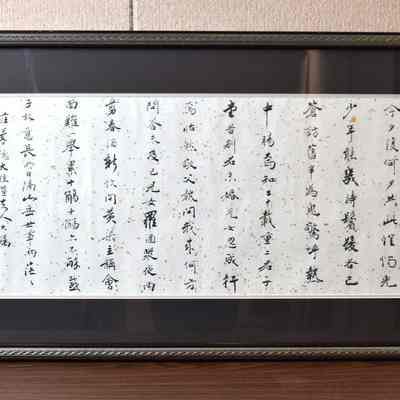 今夕復何夕共此燈燭光
少年能幾時鬢髮各已
蒼訪舊半為鬼驚呼熱
中腸焉知二十載重上君子
堂昔別君未婚兒女忽成行
怡然敬父執問我來何方
問答未及已兒女羅酒漿夜雨
剪春韭新炊間黃粱主稱會
面難一舉累十觴十觴亦不醉感
子故意長明日隔山岳世事兩茫々